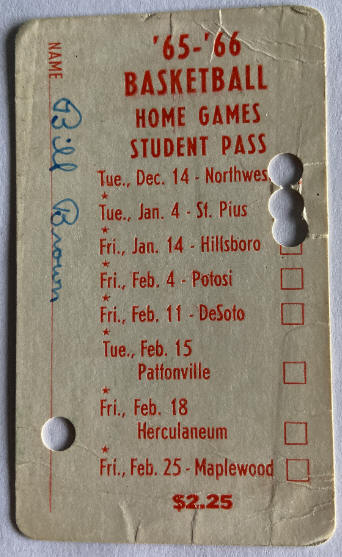 '65-'66
BASKETBALL
HOME GAMES
STUDENT PASS
Tue., Dec. 14 - Northwes
Tue., Jan. 4 - St. Pius
Fri., Jan. 14 - Hillsboro
Fri., Feb. 4 - Potosi
Fri., Feb. 11 - DeSoto
Tue., Feb. 15
Pattonville
Fri., Feb. 18
Herculaneum
Fri., Feb. 25 - Maplewood
$2.25
NAME Bill Brown